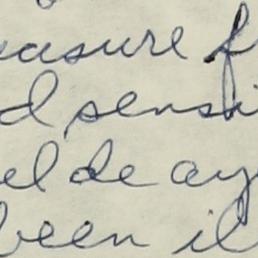 easure f
d sensi
el de ay
been il